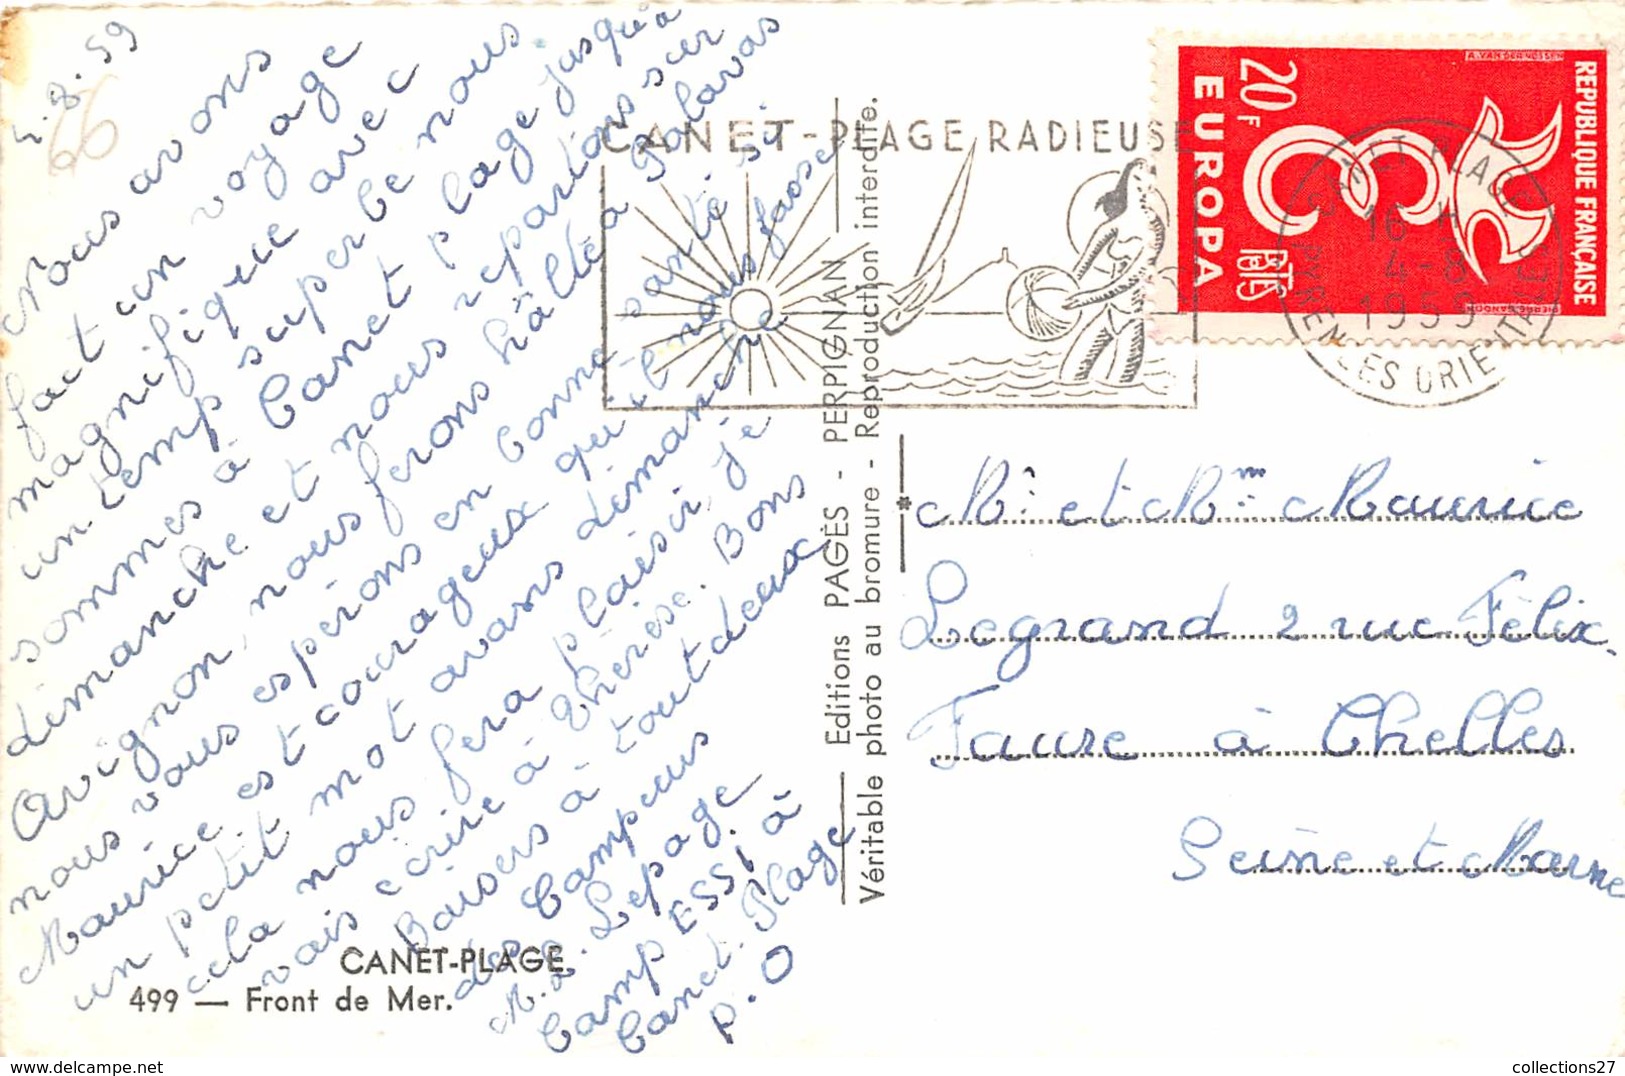 4.8.59
66
Nous avons
fait un voyage
magnifique avec
un temp superbe nous
sommes à Canet plage jusqu'à
dimanche et nous repartions sur
Avignon, nous ferons hâlte à Palavas
nous vous espérions en bonne santé si
Maurice est courageux qu'il nous fasse
un petit mot avans dimanche
cela nous fera plaisir, je
vais écrire à Thérèse. Bons
Baisers à tout deux
des Campeurs
M. L. Lepage
Camp ESSI à
Canet-Plage
P.O
CANET-PLAGE
499 — Front de Mer.
Editions PAGÈS - PERPIGNAN
Véritable photo au bromure - Reproduction interdite.
CANET-PLAGE RADIEUSE
CANET PLAGE
16 H
4-8
1959
PYRENEES ORIENTALES
REPUBLIQUE FRANÇAISE
20F
EUROPA
POSTES
A. VAN DER VOSSEN
PIERRE GANDON
Mr et Mme Maurice
Legrand 2 rue Félix
Faure à Chelles
Seine et Marne
collections27